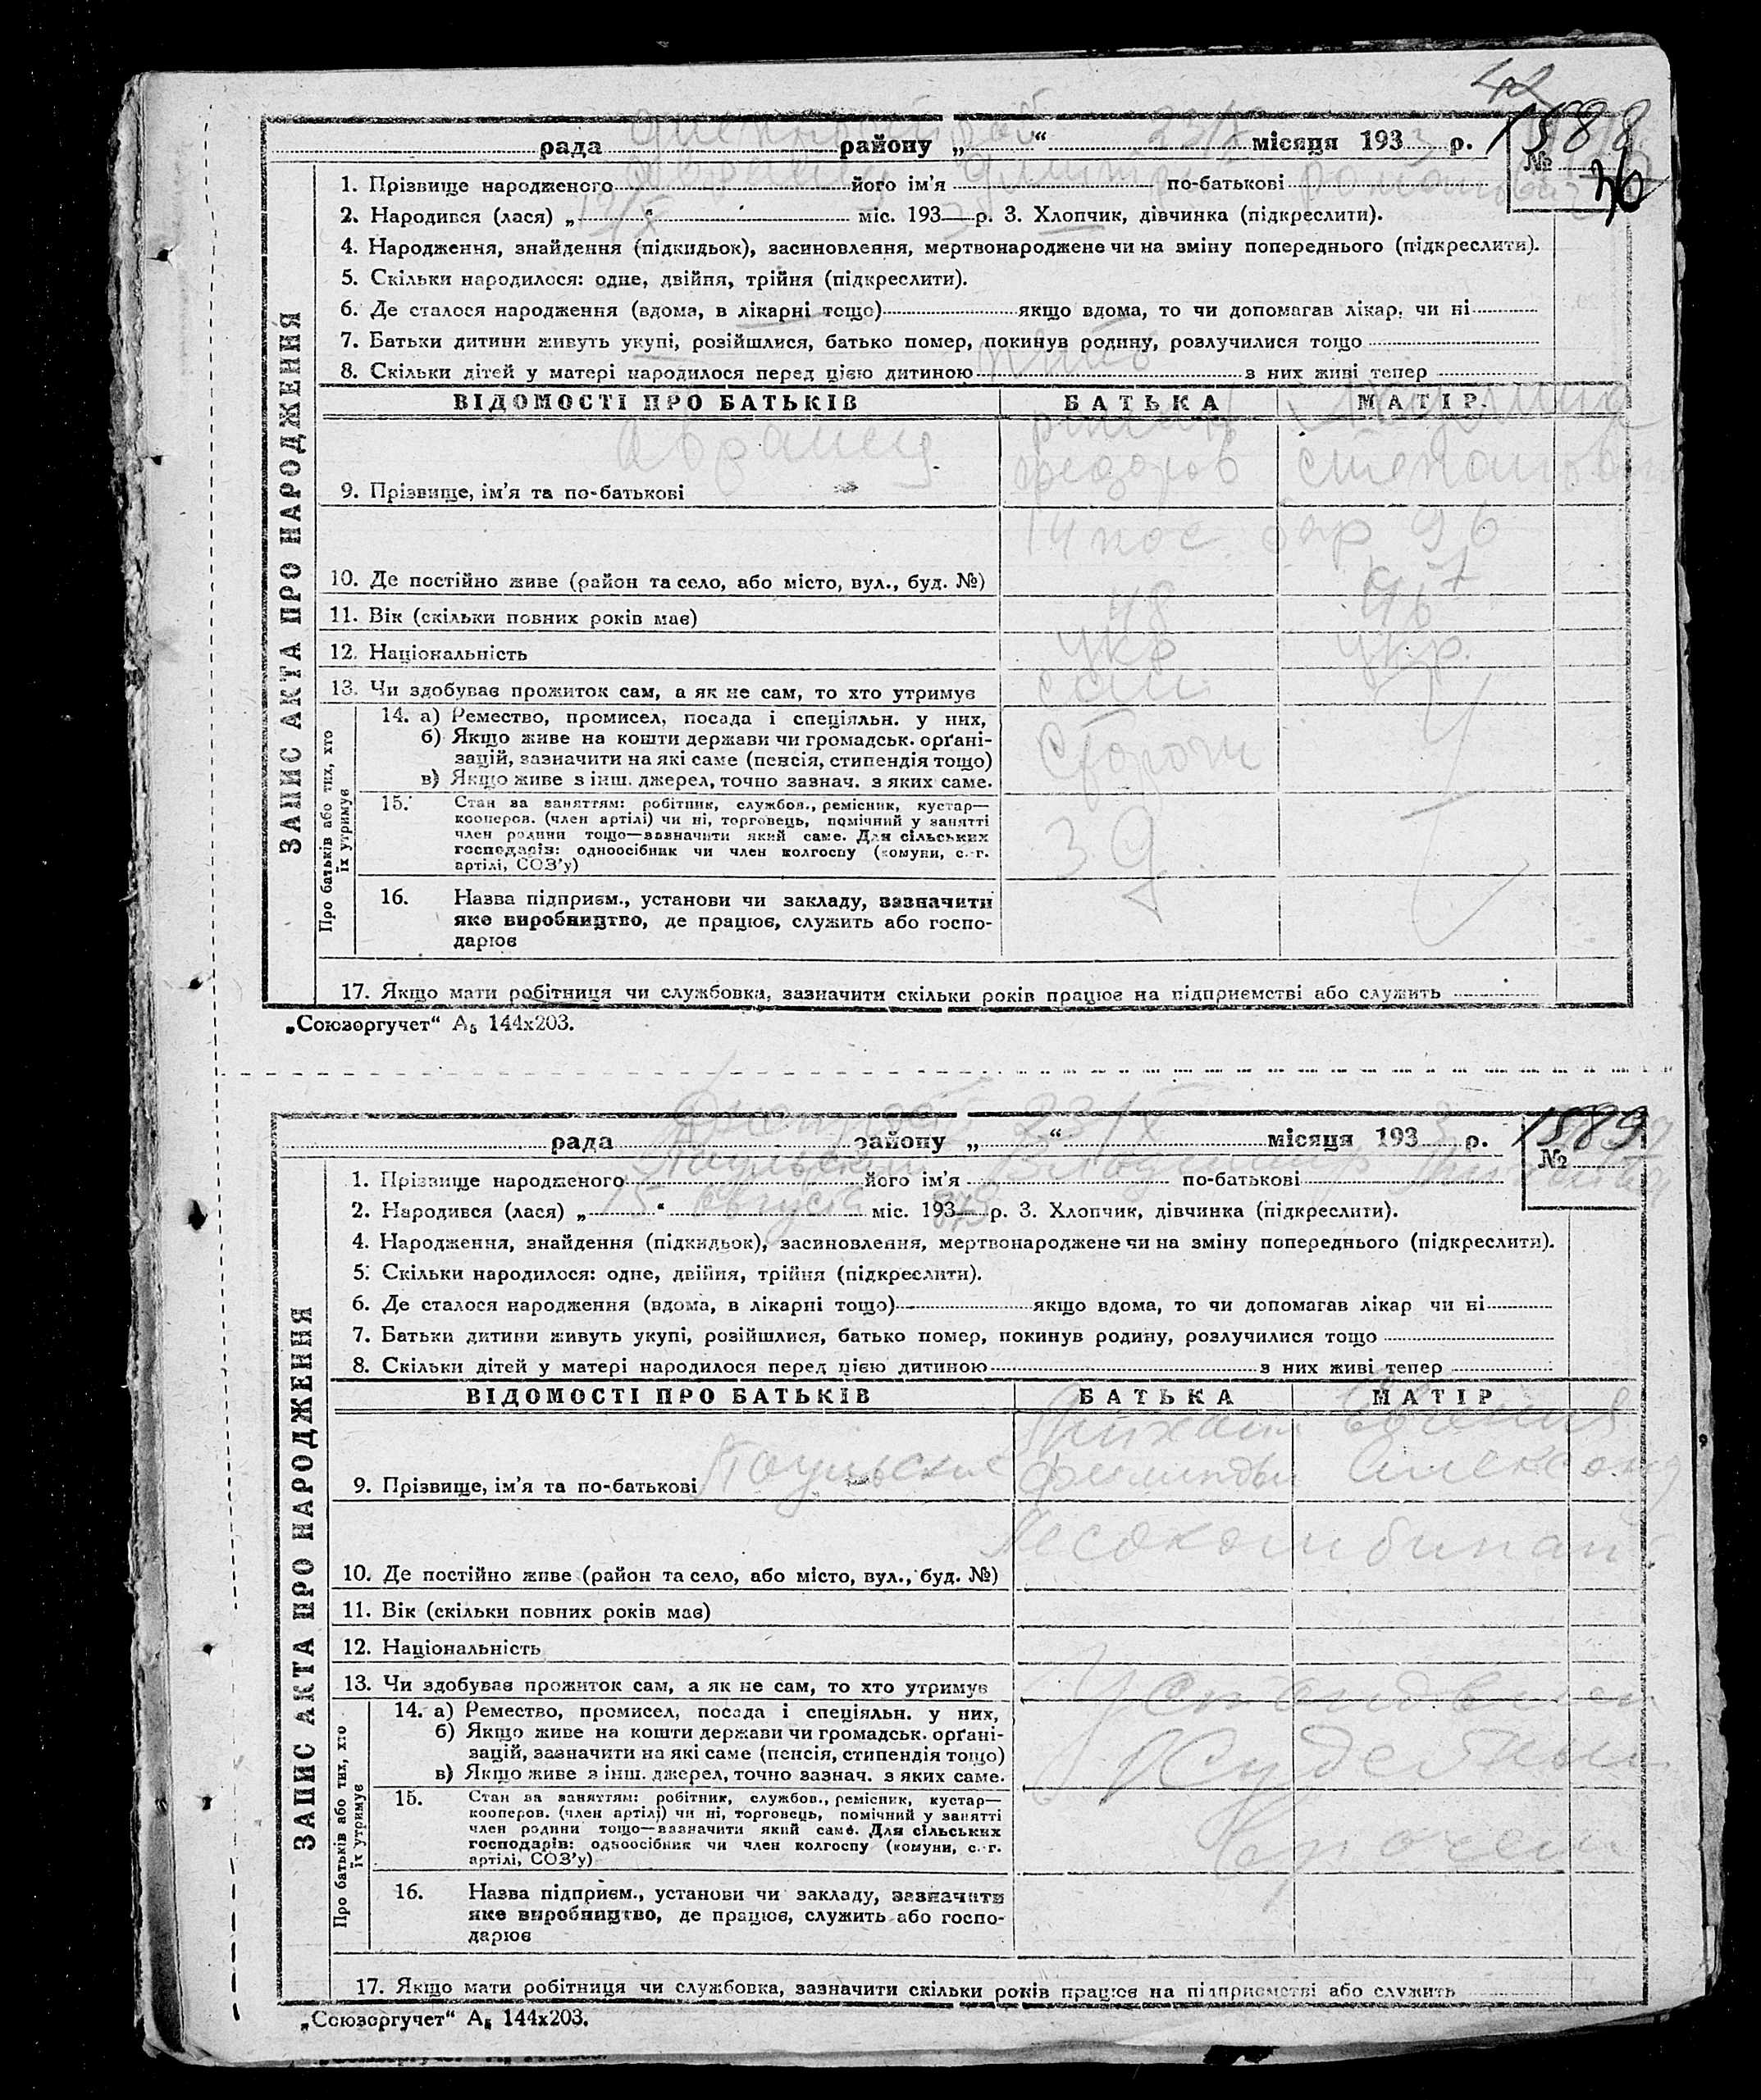 42
рада району „ “ 23/X місяця 1933 р. 1588
№ 36
1. Прізвище народженого його ім'я по-батькові
2. Народився (лася) „ 19/X “ міс. 193 р. 3. Хлопчик, дівчинка (підкреслити).
4. Народження, знайдення (підкидьок), засиновлення, мертвонароджене чи на зміну попереднього (підкреслити).
5. Скільки народилося: одне, двійня, трійня (підкреслити).
6. Де сталося народження (вдома, в лікарні тощо) якщо вдома, то чи допомагав лікар, чи ні
7. Батьки дитини живуть укупі, розійшлися, батько помер, покинув родину, розлучилися тощо
8. Скільки дітей у матері народилося перед цією дитиною з них живі тепер
ЗАПИС АКТА ПРО НАРОДЖЕННЯ
ВІДОМОСТІ ПРО БАТЬКІВ БАТЬКА МАТІР
9. Прізвище, ім'я та по-батькові
10. Де постійно живе (район та село, або місто, вул., буд. №)
11. Вік (скільки повних років має) 48 46
12. Національність укр укр.
13. Чи здобуває прожиток сам, а як не сам, то хто утримує сам
Про батьків або тих, хто їх утримує
14. а) Ремество, промисел, посада і спеціяльн. у них,
б) Якщо живе на кошти держави чи громадськ. орґані-
зацій, зазначити на які саме (пенсія, стипендія тощо) Сторож
в) Якщо живе з інш. джерел, точно зазнач. з яких саме.
15. Стан за заняттям: робітник, службов., ремісник, кустар—
кооперов. (член артілі) чи ні, торговець, помічний у занятті
член родини тощо—зазначити який саме. Для сільських
господарів: одноосібник чи член колгоспу (комуни, с.-г.
артілі, СОЗ'у)
16. Назва підприєм., установи чи закладу, зазначити
яке виробництво, де працює, служить або госпо-
дарює
17. Якщо мати робітниця чи службовка, зазначити скільки років працює на підприємстві або служить
„Союзоргучет“ А5 144х203.
рада району „ “ 23/X місяця 1933 р. 1589
№
1. Прізвище народженого його ім'я Владимир по-батькові
2. Народився (лася) „ 15 “ августа міс. 193 р. 3. Хлопчик, дівчинка (підкреслити).
4. Народження, знайдення (підкидьок), засиновлення, мертвонароджене чи на зміну попереднього (підкреслити).
5. Скільки народилося: одне, двійня, трійня (підкреслити).
6. Де сталося народження (вдома, в лікарні тощо) якщо вдома, то чи допомагав лікар чи ні
7. Батьки дитини живуть укупі, розійшлися, батько помер, покинув родину, розлучилися тощо
8. Скільки дітей у матері народилося перед цією дитиною з них живі тепер
ЗАПИС АКТА ПРО НАРОДЖЕННЯ
ВІДОМОСТІ ПРО БАТЬКІВ БАТЬКА МАТІР
Михаил Евгения
9. Прізвище, ім'я та по-батькові
Лесокомбинат
10. Де постійно живе (район та село, або місто, вул., буд. №)
11. Вік (скільки повних років має)
12. Національність
13. Чи здобуває прожиток сам, а як не сам, то хто утримує
Про батьків або тих, хто їх утримує
14. а) Ремество, промисел, посада і спеціяльн. у них,
б) Якщо живе на кошти держави чи громадськ. орґані-
зацій, зазначити на які саме (пенсія, стипендія тощо)
в) Якщо живе з інш. джерел, точно зазнач. з яких саме.
15. Стан за заняттям: робітник, службов., ремісник, кустар—
кооперов. (член артілі) чи ні, торговець, помічний у занятті
член родини тощо—зазначити який саме. Для сільських
господарів: одноосібник чи член колгоспу (комуни, с.-г.
артілі, СОЗ'у)
16. Назва підприєм., установи чи закладу, зазначити
яке виробництво, де працює, служить або госпо-
дарює
17. Якщо мати робітниця чи службовка, зазначити скільки років працює на підприємстві або служить
„Союзоргучет“ А5 144х203.